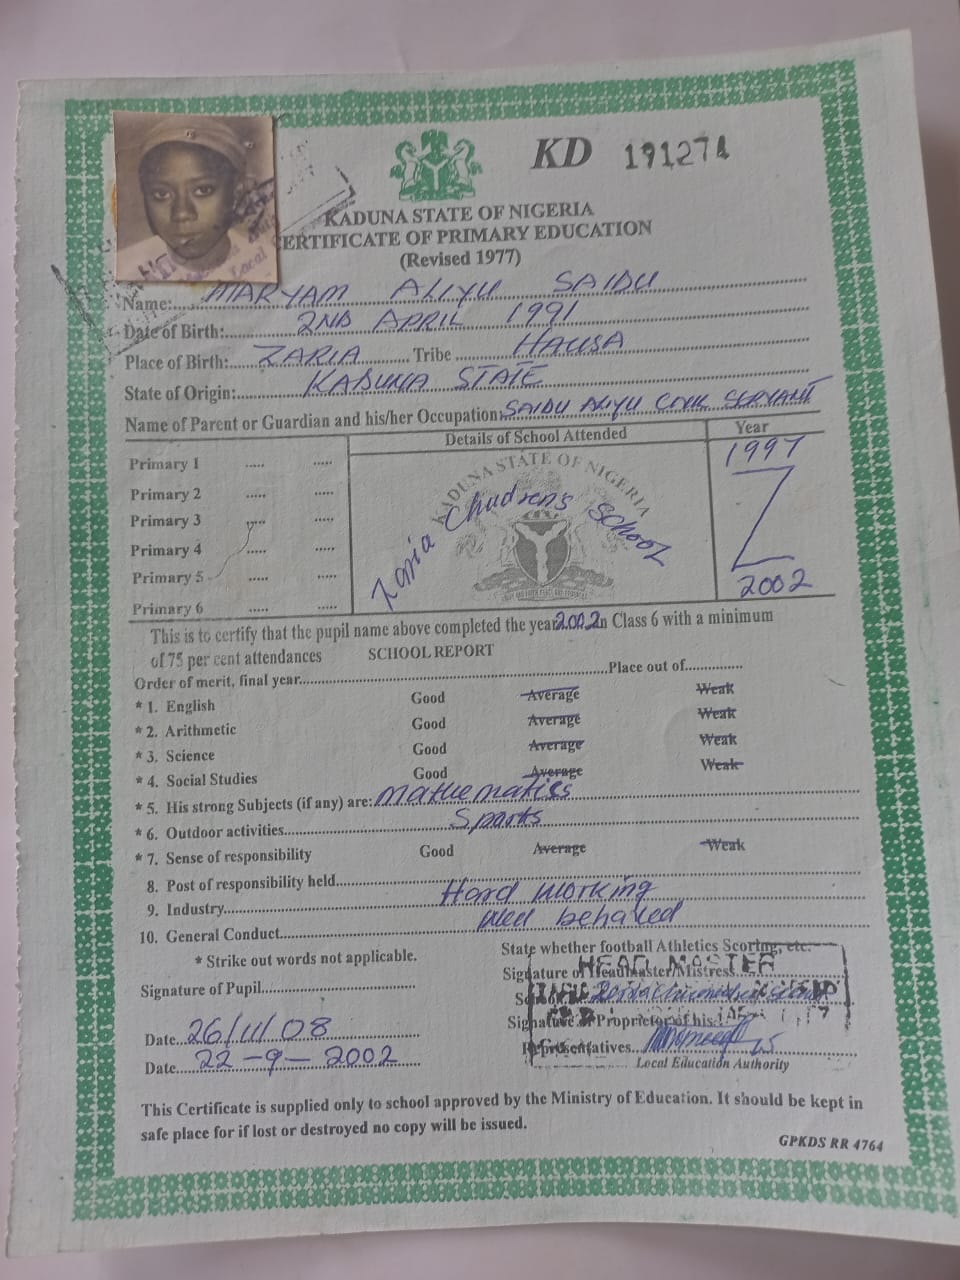 KD 191274
KADUNA STATE OF NIGERIA
CERTIFICATE OF PRIMARY EDUCATION
(Revised 1977)
Name:....MARYAM ALIYU SAIDU
Date of Birth:....2ND APRIL 1991
Place of Birth:..ZARIA........Tribe....HAUSA
State of Origin:....KADUNA STATE
Name of Parent or Guardian and his/her Occupation:SAIDU ALIYU CIVIL SERVANT
Details of School Attended Year
Primary 1 ..... .....
Primary 2 ..... .....
Primary 3 ..... .....
Primary 4 ..... .....
Primary 5 ..... .....
Primary 6 ..... .....
KADUNA STATE OF NIGERIA
Zaria Childrens School
1997
2002
This is to certify that the pupil name above completed the year 2002 in Class 6 with a minimum
of 75 per cent attendances SCHOOL REPORT
Order of merit, final year..........Place out of..........
* 1. English Good Average Weak
* 2. Arithmetic Good Average Weak
* 3. Science Good Average Weak
* 4. Social Studies Good Average Weak
* 5. His strong Subjects (if any) are: Mathematics
* 6. Outdoor activities....Sports
* 7. Sense of responsibility Good Average Weak
8. Post of responsibility held..........
9. Industry....Hard working
10. General Conduct....Well behaved
* Strike out words not applicable.
State whether football Athletics Scoring, etc.
Signature of Headmaster/Mistress
HEAD MASTER
Signature of Pupil..........
Signature of Proprietor of his
Representatives
Local Education Authority
Date..26/11/08
Date..22-9-2002
This Certificate is supplied only to school approved by the Ministry of Education. It should be kept in
safe place for if lost or destroyed no copy will be issued.
GPKDS RR 4764